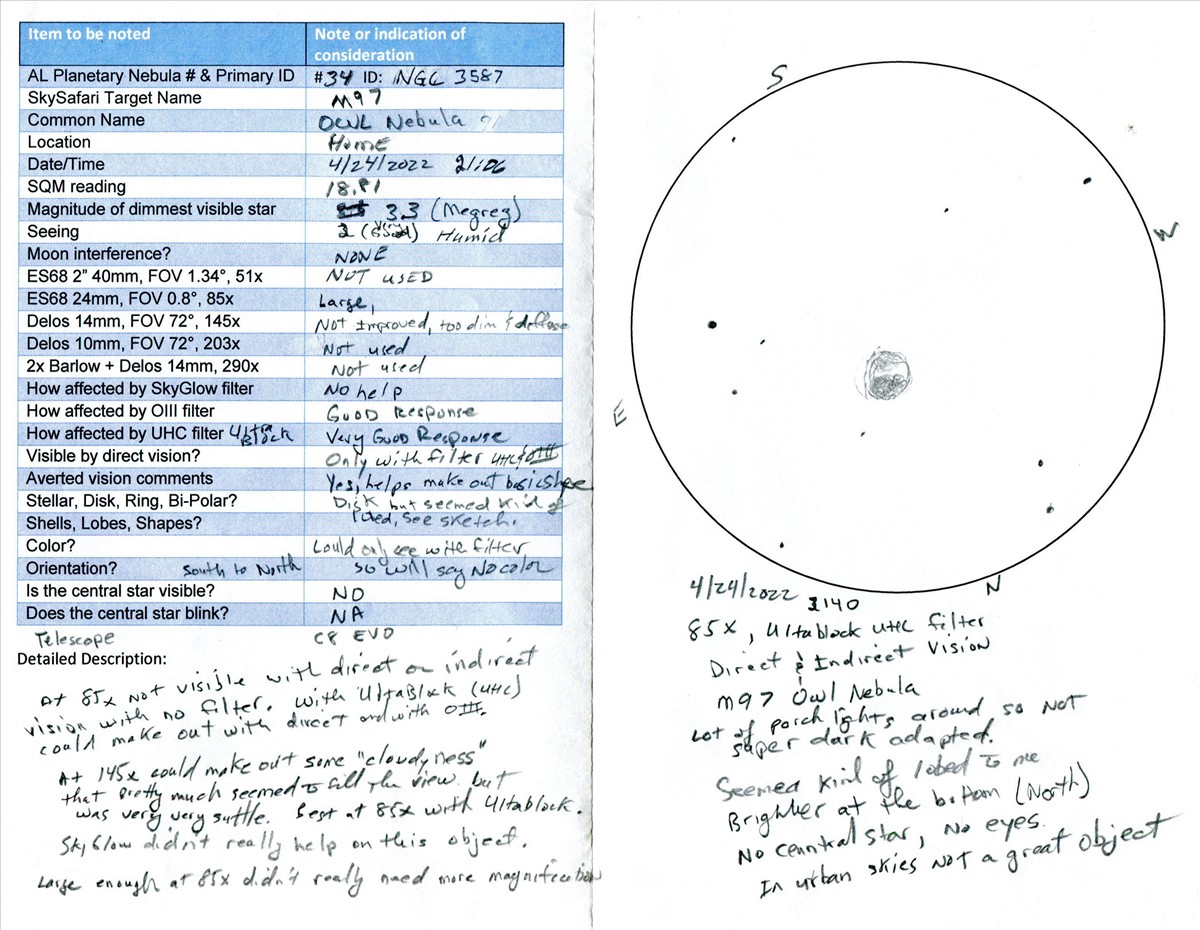 Item to be noted Note or indication of consideration
AL Planetary Nebula # & Primary ID #34 ID: NGC 3587
SkySafari Target Name M97
Common Name OWL Nebula
Location Home
Date/Time 4/24/2022 21:06
SQM reading 18.81
Magnitude of dimmest visible star 3.3 (Megrez)
Seeing Humid
Moon interference? NONE
ES68 2" 40mm, FOV 1.34°, 51x NOT USED
ES68 24mm, FOV 0.8°, 85x Large,
Delos 14mm, FOV 72°, 145x Not Improved, too dim & diffuse
Delos 10mm, FOV 72°, 203x Not used
2x Barlow + Delos 14mm, 290x Not used
How affected by SkyGlow filter No help
How affected by OIII filter GOOD Response
How affected by UHC filter Ultra Block Very Good Response
Visible by direct vision? Only with filter UHC & OIII
Averted vision comments Yes, helps make out basic shape
Stellar, Disk, Ring, Bi-Polar? Disk but seemed kind of
Shells, Lobes, Shapes? lobed, see sketch.
Color? Could only see with filter
Orientation? South to North so will say No color
Is the central star visible? NO
Does the central star blink? NA
Telescope C8 EVO
Detailed Description:
At 85x not visible with direct or indirect
vision with no filter. with UltaBlock (UHC)
could make out with direct and with OIII.
At 145x could make out some "cloudyness"
that pretty much seemed to fill the view. but
was very very suttle. Best at 85x with Ultablock.
SkyGlow didn't really help on this object.
Large enough at 85x didn't really need more magnification
S
W
E
N
4/24/2022 2140
85x, Ultablock UHC filter
Direct & Indirect Vision
M97 Owl Nebula
Lot of porch lights around so NOT
super dark adapted.
Seemed kind of lobed to me
Brighter at the bottom (North)
No cenntral star, No eyes.
In urban skies not a great object